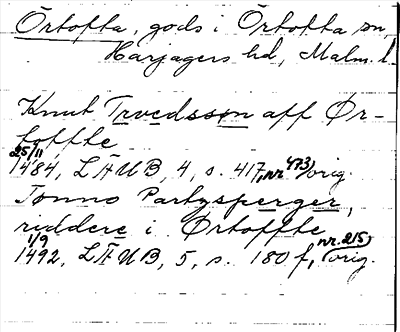 Örtofta, gods i Örtofta sn,
Harjagers hd, Malm. l.
Knut Truedsson aff Ør-
toffte
25/11 1484, LÄUB, 4, s. 417, nr 473, orig.
Tønno Partzsperger,
riddere i Ørtoffte
1/9 1492, LÄUB, 5, s. 180 f, nr. 215, orig.